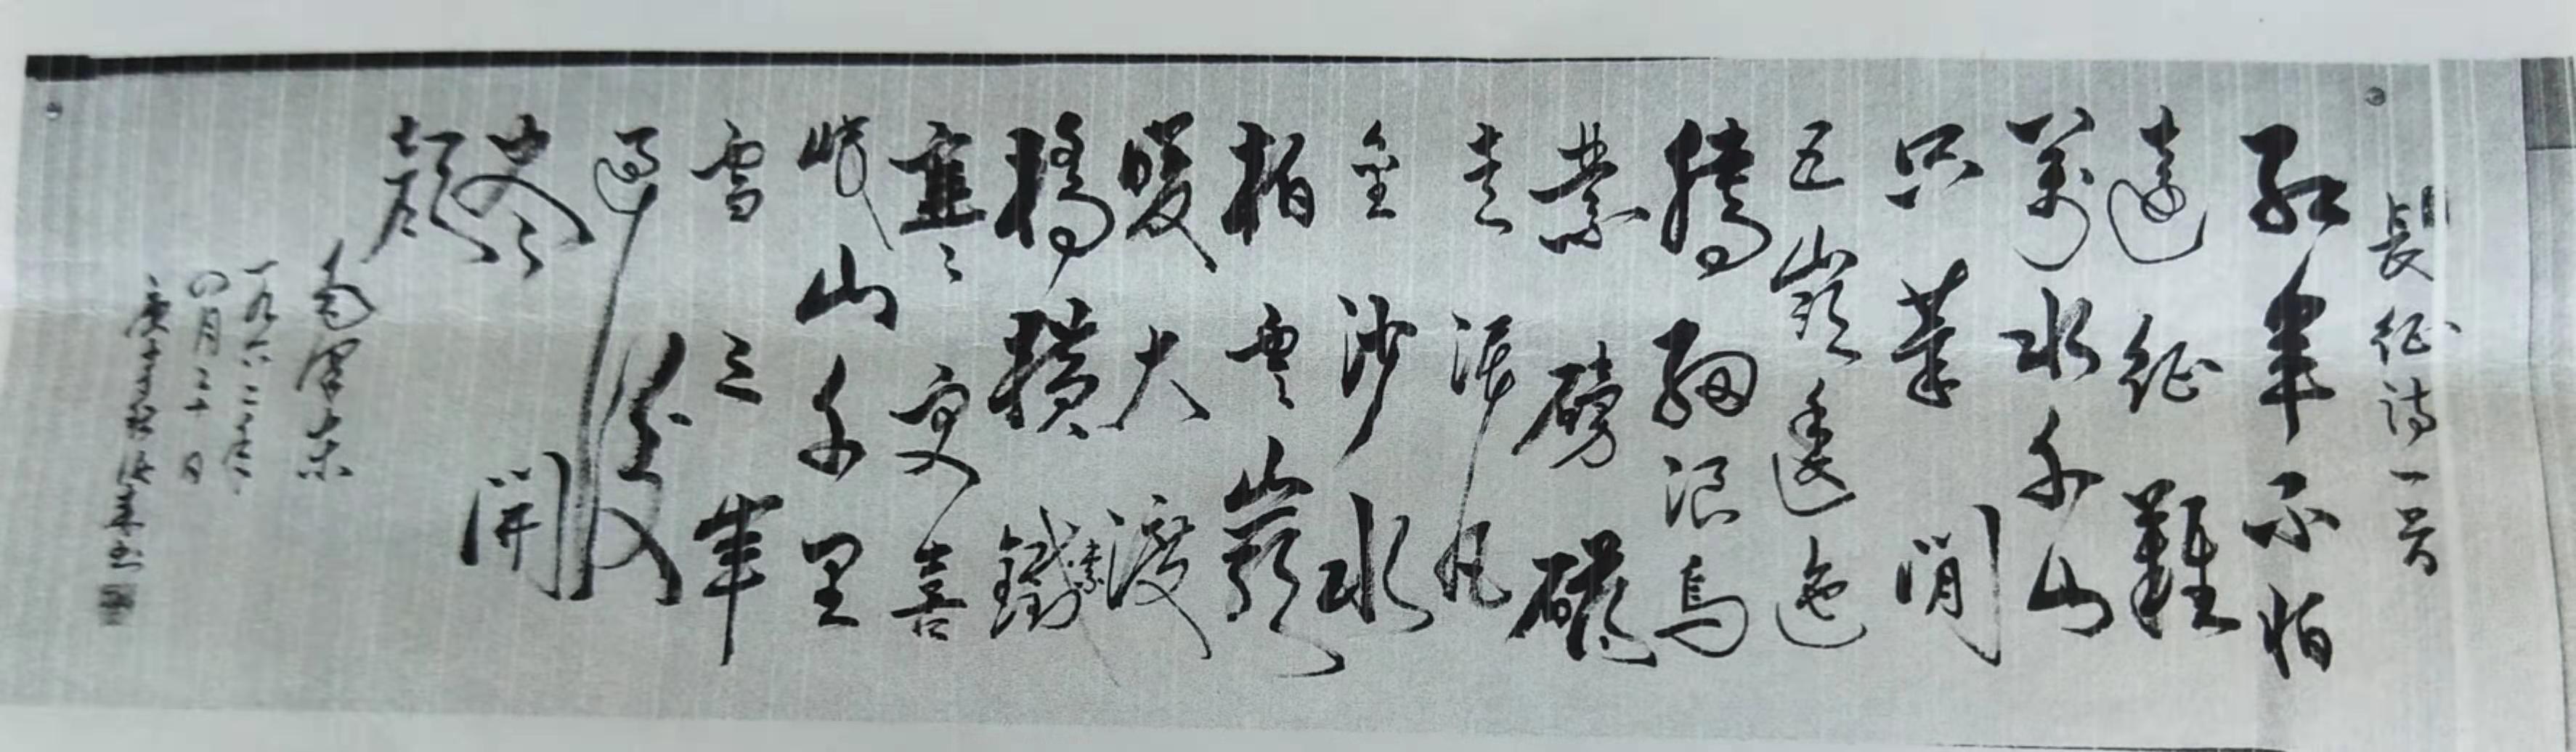 長征詩一首
紅軍不怕
遠征難
萬水千山
只等閒
五嶺逶迤
騰細浪烏
蒙磅礴
走泥丸
金沙水
拍雲
暖大渡
橋橫鐵索
寒更喜
岷山千里
雪三軍
過後
盡開
顏
毛澤東
一九六二年
四月二十日
庚子